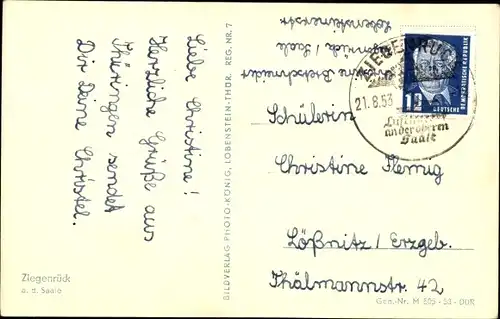 Liebe Christine!
Herzliche Grüße aus
Thüringen sendet
Dir Deine Christel.
Ziegenrück
a. d. Saale
BILDVERLAG PHOTO-KÖNIG, LOBENSTEIN-THÜR. REG. NR. 7
Ziegenrück / Saale
ZIEGENRÜCK
21.8.53
Luftkurort
an der oberen
Saale
12
DEUTSCHE
DEMOKRATISCHE REPUBLIK
Schülerin
Christine
Lößnitz / Erzgeb.
Thälmannstr. 42
Gen.-Nr. M 505 - 53 - DDR